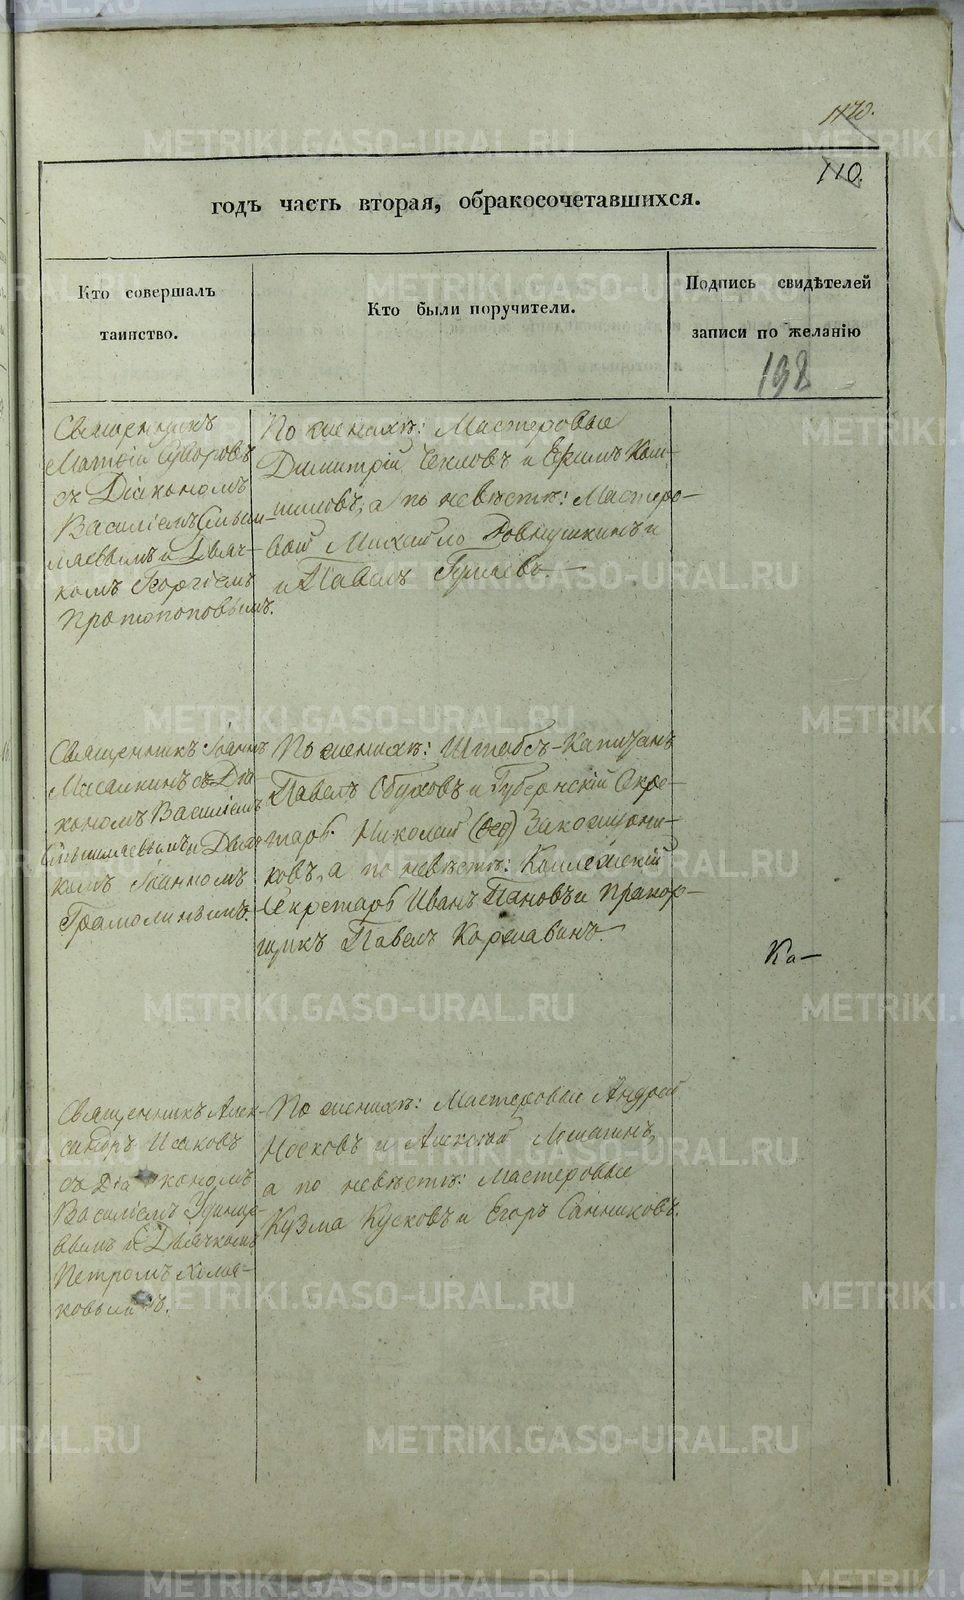 110.
годъ часть вторая, обракосочетавшихся.
Кто совершалъ
таинство.
Кто были поручители.
Подпись свидѣтелей
записи по желанію
198
Священникъ
Матѳій Суворовъ
съ Діакономъ
Василіемъ
и Дьяч-
комъ Георгіемъ
Протопоповымъ.
По женихѣ: Мастеровые
Димитрій и Ефимъ
а по невѣстѣ: Мастеро-
вой Михайло и
и Павелъ
Священникъ Іоаннъ
съ Діа
кономъ Василіемъ
и Дьяч
комъ Іоанномъ
Грамолинымъ.
По женихѣ: Штабсъ-Капитанъ
Павелъ Обуховъ и Губернскій Секре-
тарь Николай
ковъ, а по невѣстѣ: Коллежскій
Секретарь Иванъ Пановъ и Прапор-
щикъ Павелъ Коржавинъ.
Ка—
Священникъ Алек-
сандръ Исаковъ
съ Діакономъ
Василіемъ Удинце-
вымъ и Дьячкомъ
Петромъ Хомя-
ковымъ.
По женихѣ: Мастеровые Андрей
Носковъ и Алексѣй
а по невѣстѣ: Мастеровые
Кузма Кусковъ и Егоръ Санниковъ.
METRIKI.GASO-URAL.RU